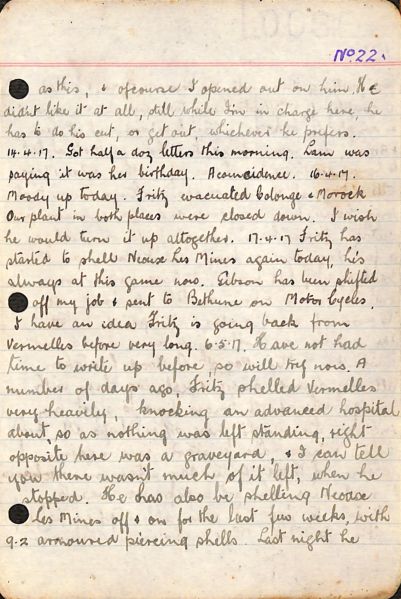 No 22.
as this, & ofcourse I opened out on him. He
didnt like it at all, still while Im in charge here, he
has to do his cut, or get out, whichever he prefers.
14.4.17. Got half a doz letters this morning. Lam was
saying it was her birthday. A coincidence. 16.4.17.
Moody up today. Fritz evacuated Colonge & Morock
Our plant in both places were closed down. I wish
he would turn it up altogether. 17.4.17 Fritz has
started to shell Neouse Les Mines again today, he's
always at this game now. Gibson has been shifted
off my job & sent to Bethune on Motor Cycles.
I have an idea Fritz is going back from
Vermelles before very long. 6.5.17. Have not had
time to write up before so will try now. A
number of days ago, Fritz shelled Vermelles
very heavily, knocking an advanced hospital
about, so as nothing was left standing, right
opposite here was a graveyard, & I can tell
you there wasn't much of it left, when he
stopped. He has also be shelling Neouse
Les Mines off & on for the last few weeks, with
9.2 armoured piercing shells. Last night he